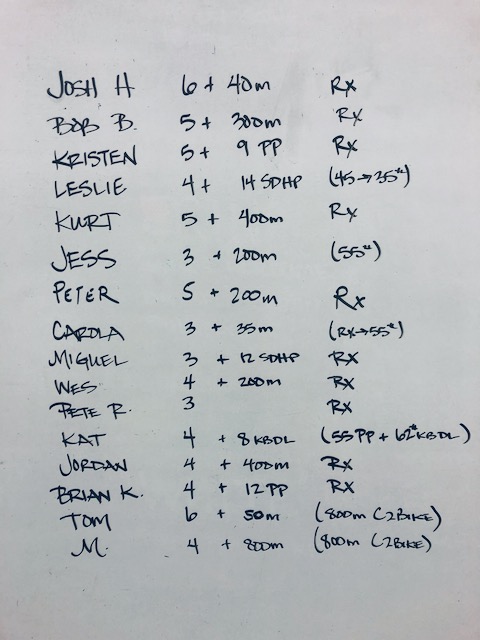 JOSH H 6 + 40m Rx
BOB B. 5 + 300m Rx
KRISTEN 5 + 9 PP Rx
LESLIE 4 + 14 SDHP (45→35#)
KURT 5 + 400m Rx
JESS 3 + 200m (55#)
PETER 5 + 200m Rx
CARDLA 3 + 35m (RX→55#)
MIGUEL 3 + 12 SDHP Rx
WES 4 + 200m Rx
PETE R. 3 Rx
KAT 4 + 8 KBDL (55 PP + 62# KBDL)
JORDAN 4 + 400m Rx
BRIAN K. 4 + 12 PP Rx
TOM 6 + 50m (800m C2BIKE)
M. 4 + 800m (800m C2BIKE)